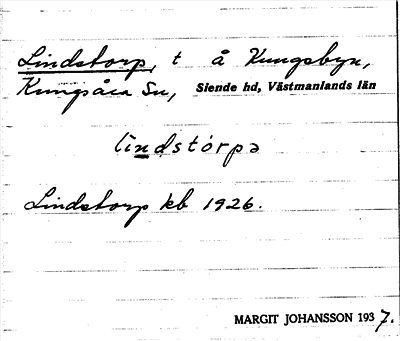 Lindstorp, t å Kungsbyn,
Kungsåra Sn, Siende hd, Västmanlands län
lindstórpə
Lindstorp kb 1926.
MARGIT JOHANSSON 1937.